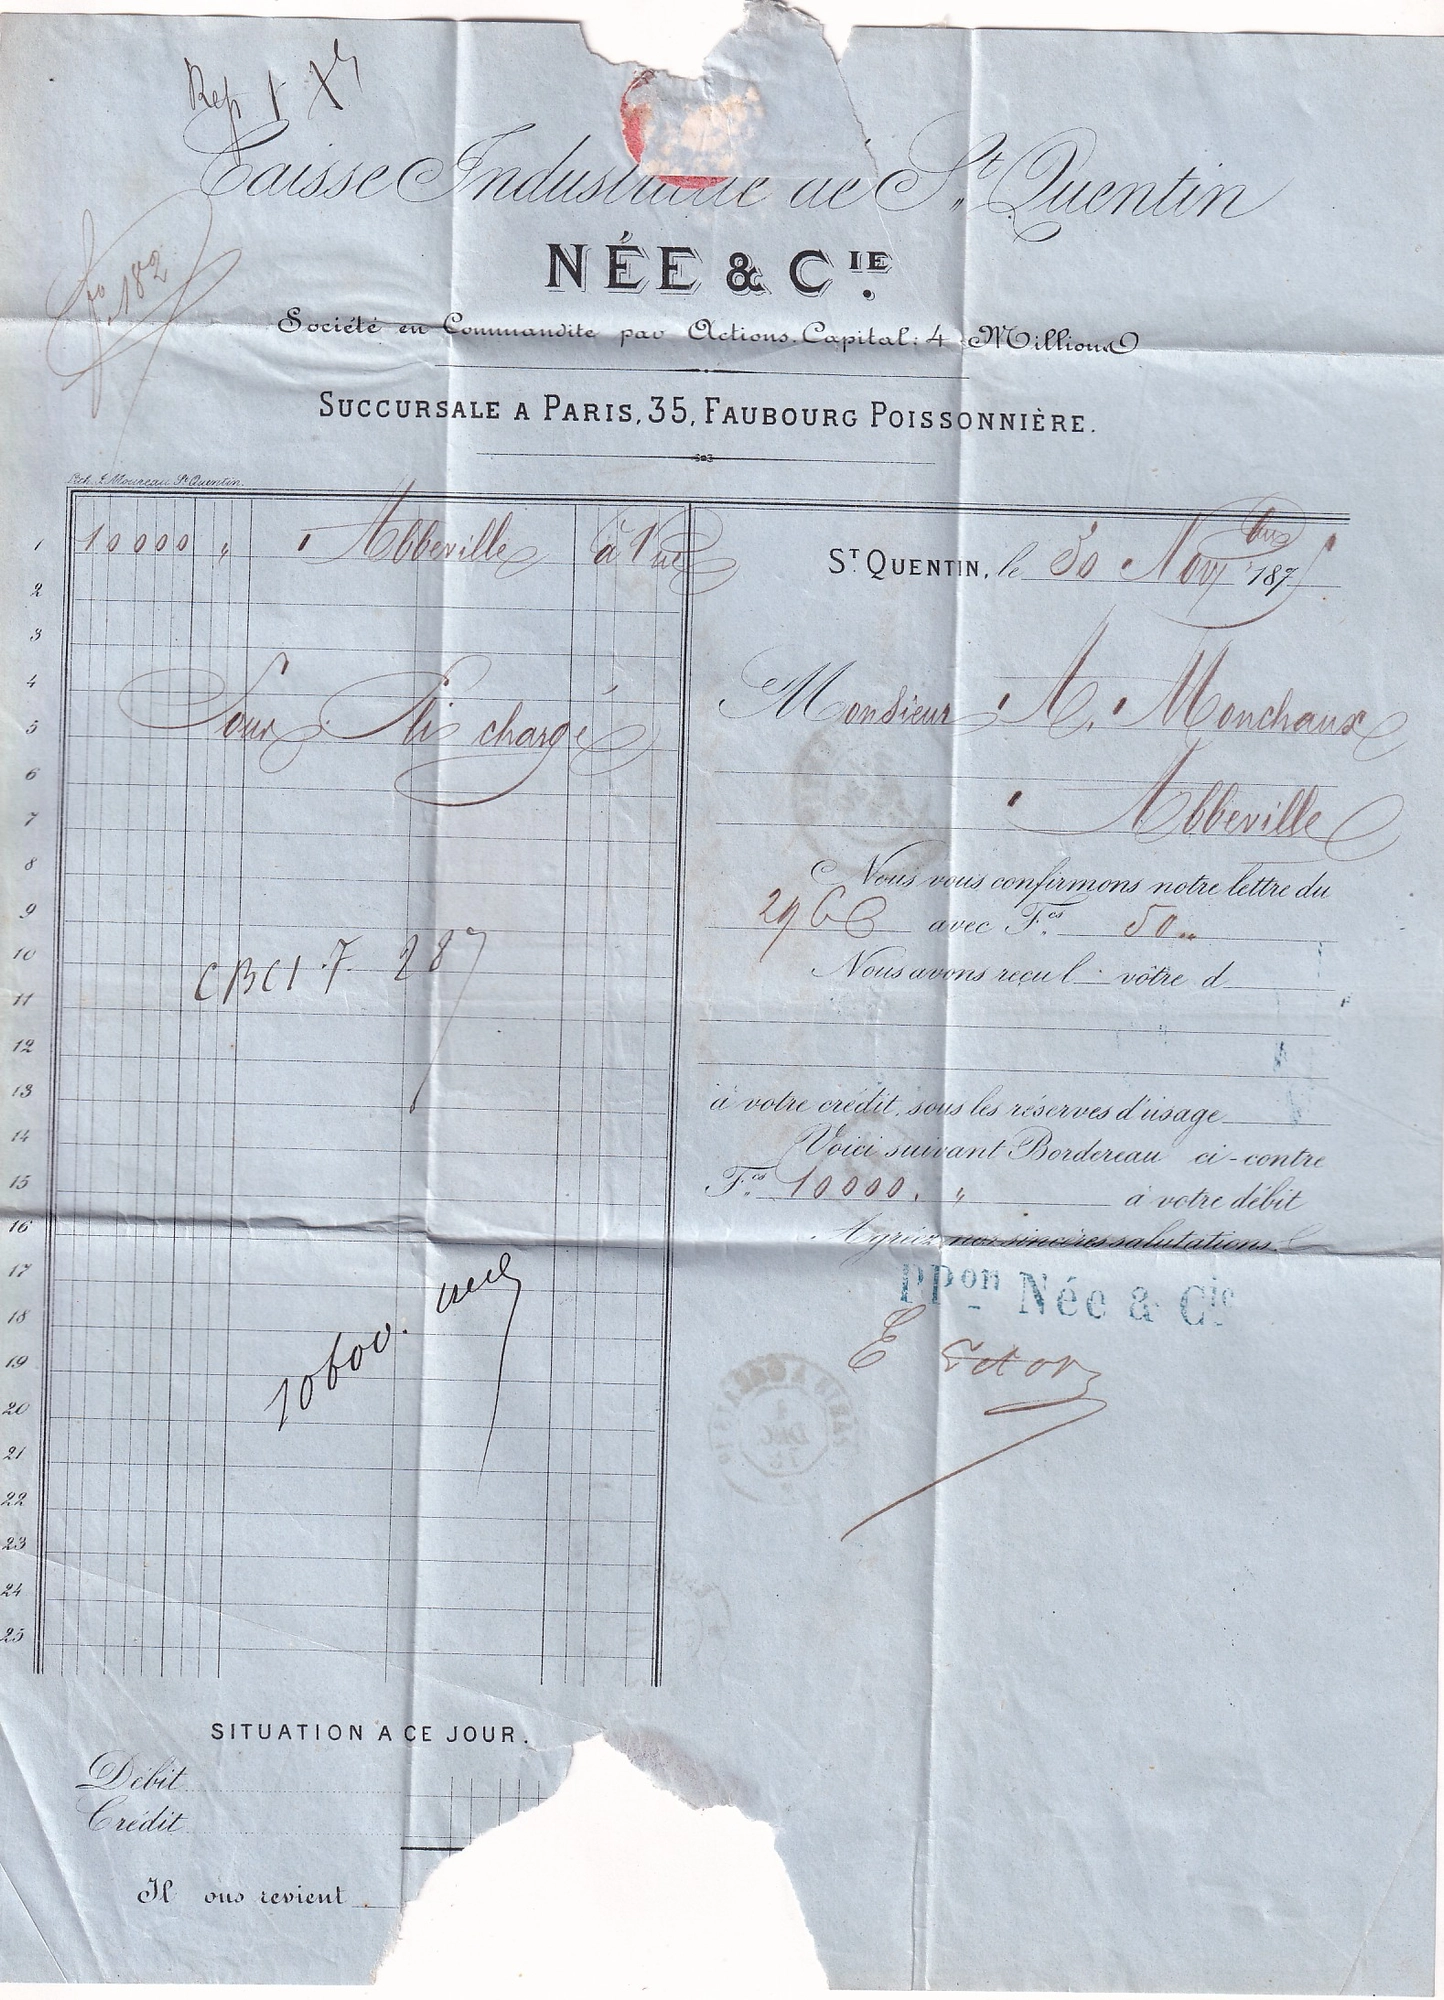 Rep
Caisse Industrielle de St Quentin
NÉE & CIE.
fo 182
Société en Commandite par Actions. Capital: 4 Millions
SUCCURSALE A PARIS, 35, FAUBOURG POISSONNIÈRE.
Lith. L. Moureau St Quentin.
1 10000 " Abbeville à Vue
ST QUENTIN, le 30 Nov 187
2
3
4
Monsieur A. Monchaux
5 Pour Pli chargé
6
Abbeville
7
8
Nous vous confirmons notre lettre du
9
29 Ct avec Fcs 50 "
10
CBCI F 287
Nous avons reçu l votre d
11
12
13
à votre crédit, sous les réserves d'usage
14
Voici suivant Bordereau ci-contre
15
Fcs 10000. " à votre débit
16
Agréez nos sincères salutations.
17
ppon Née & Cie
18
10600.
19
20
21
22
23
24
25
DEC
SITUATION A CE JOUR.
Débit
Crédit
Il ous revient